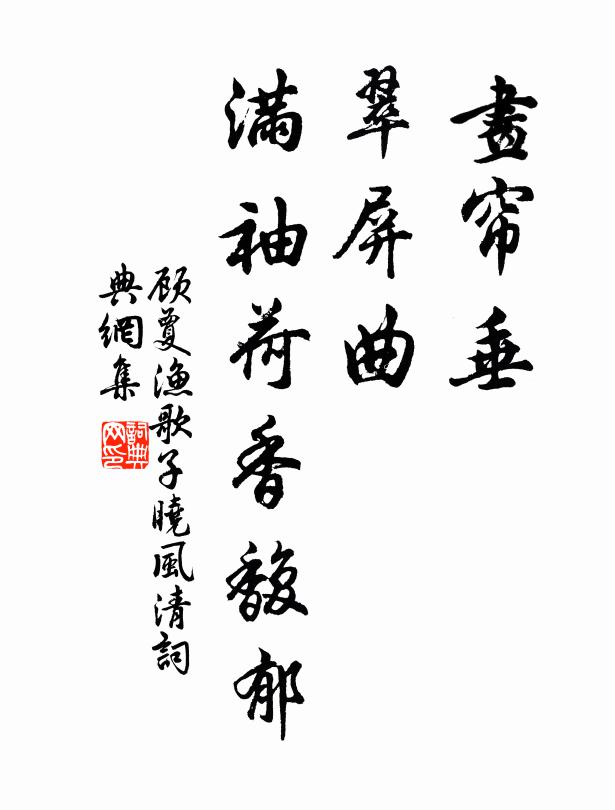 畫帘垂
翠屏曲
滿袖荷香馥郁
顾夐渔歌子曉風清詞
典網集
詞典
网印